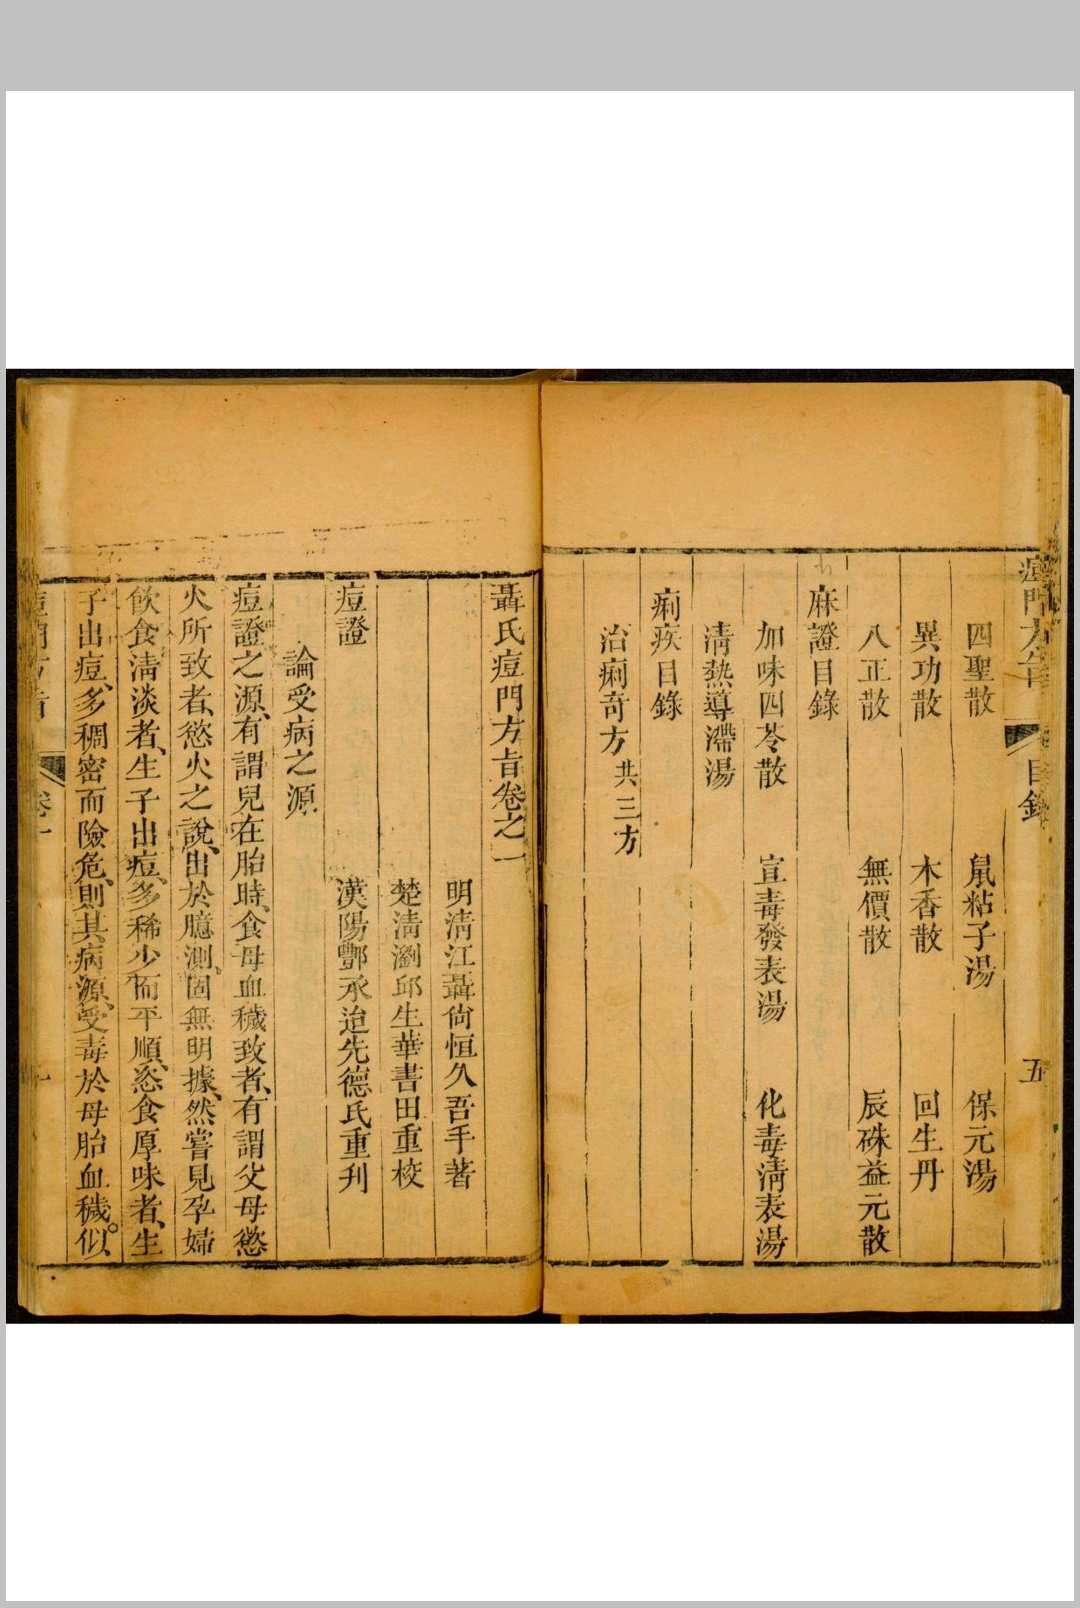 痘門方旨 目錄 五
四聖散 鼠粘子湯 保元湯
異功散 木香散 回生丹
八正散 無價散 辰硃益元散
麻證目錄
加味四苓散 宣毒發表湯 化毒淸表湯
淸熱導滯湯
痢疾目錄
治痢奇方共三方
聶氏痘門方旨卷之一
明淸江聶尙恒久吾手著
楚淸瀏邱生華書田重校
痘證 漢陽酆承迨先德氏重刋
論受病之源
痘證之源、有謂兒在胎時、食母血穢致者、有謂父母慾
火所致者、慾火之說、出於臆測、固無明據、然嘗見孕婦
飮食淸淡者、生子出痘、多稀少而平順、恣食厚味者、生
子出痘、多稠密而險危、則其病源、受毒於母胎血穢。似
痘門方旨 卷一 一